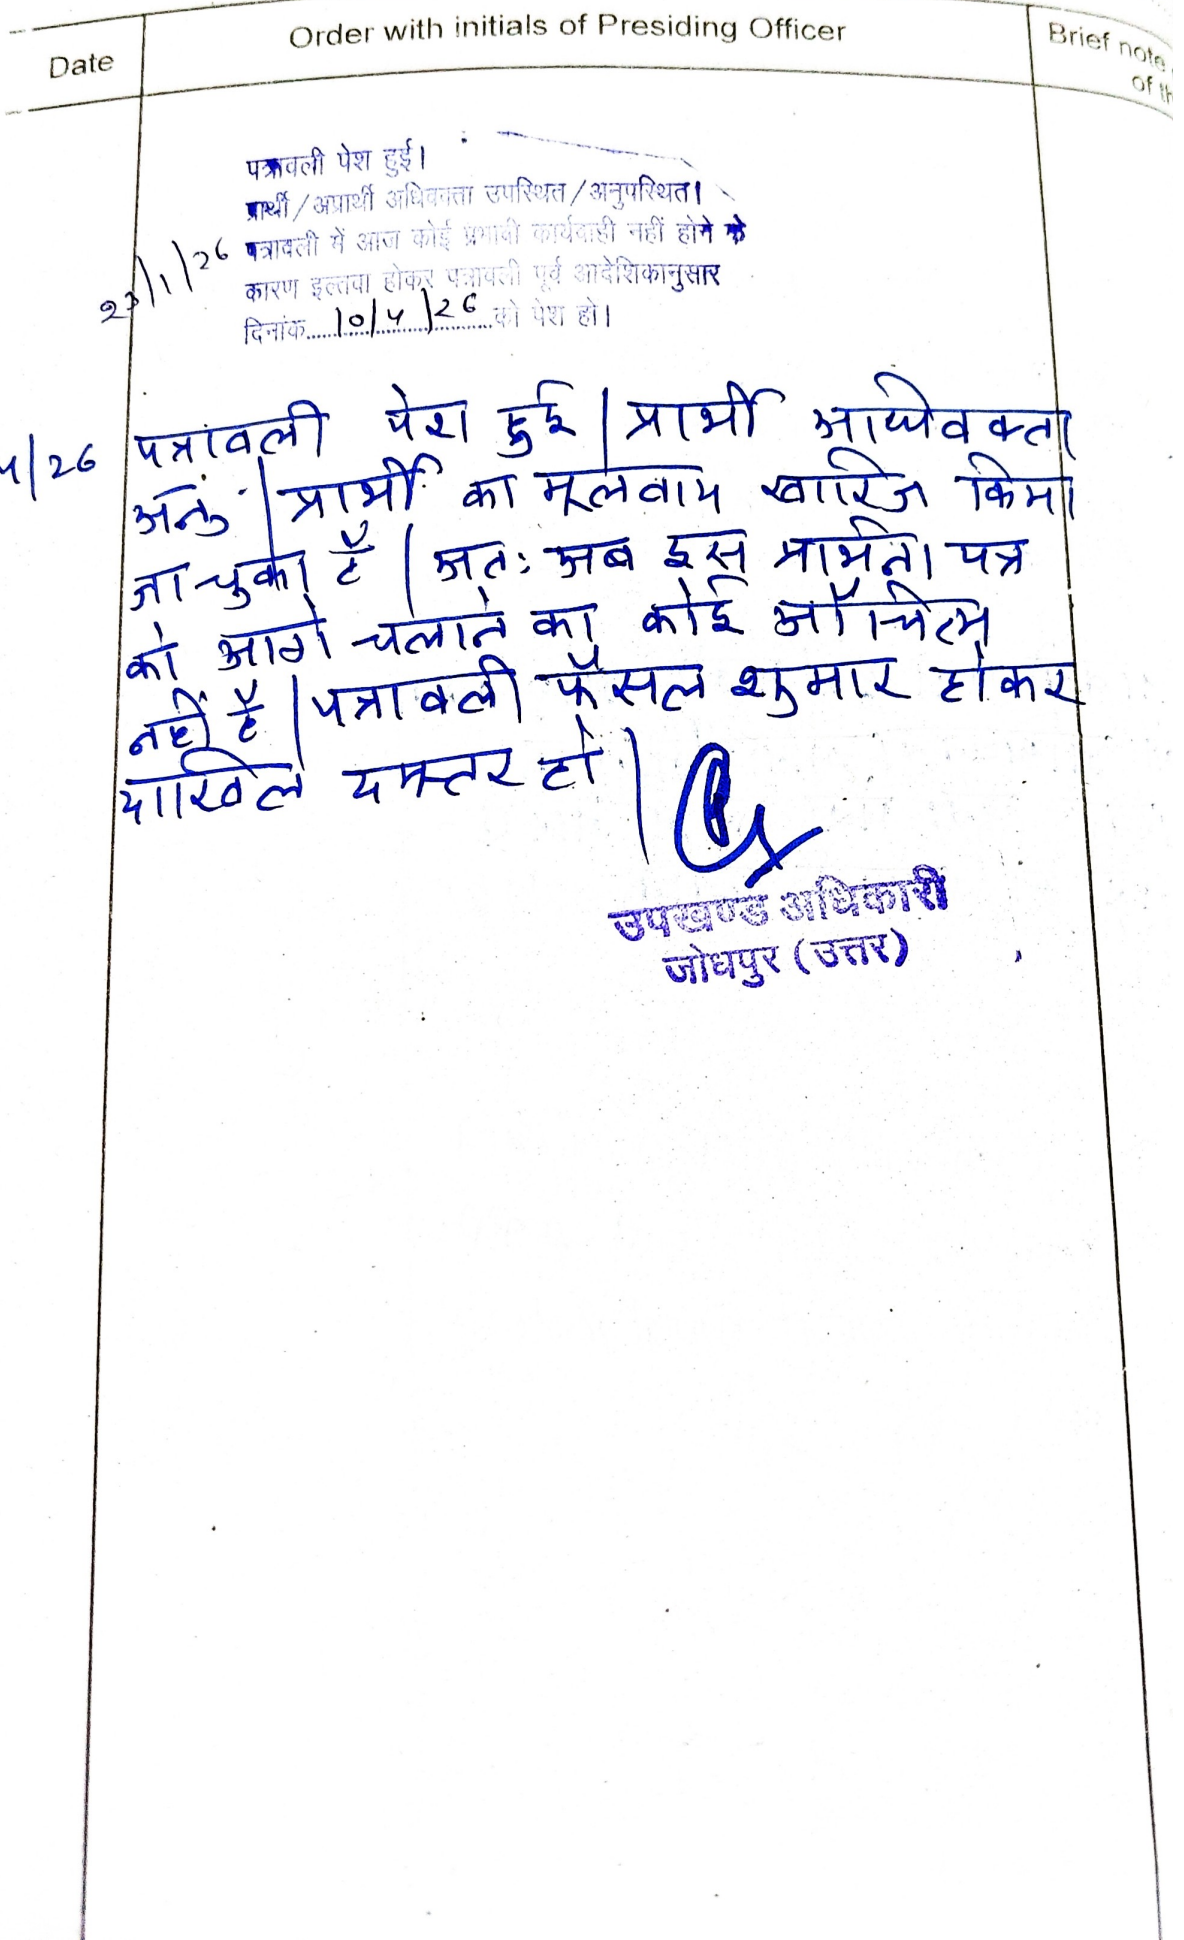 Date
Order with initials of Presiding Officer
Brief note
of th
पत्रावली पेश हुई।
प्रार्थी/अप्रार्थी अधिवक्ता उपस्थित/अनुपस्थित।
23/1/26
पत्रावली में आज कोई प्रभावी कार्यवाही नहीं होने के
कारण इल्तवा होकर पत्रावली पूर्व आदेशिकानुसार
दिनांक......10/4/26......को पेश हो।
4/26
पत्रावली पेश हुई। प्रार्थी अधिवक्ता
अनु॰। प्रार्थी का मूलवाद खारिज किया
जा चुका है। अतः अब इस प्रार्थना पत्र
को आगे चलाने का कोई औचित्य
नहीं है। पत्रावली फैसल शुमार होकर
दाखिल दफ्तर हो।
उपखण्ड अधिकारी
जोधपुर (उत्तर)